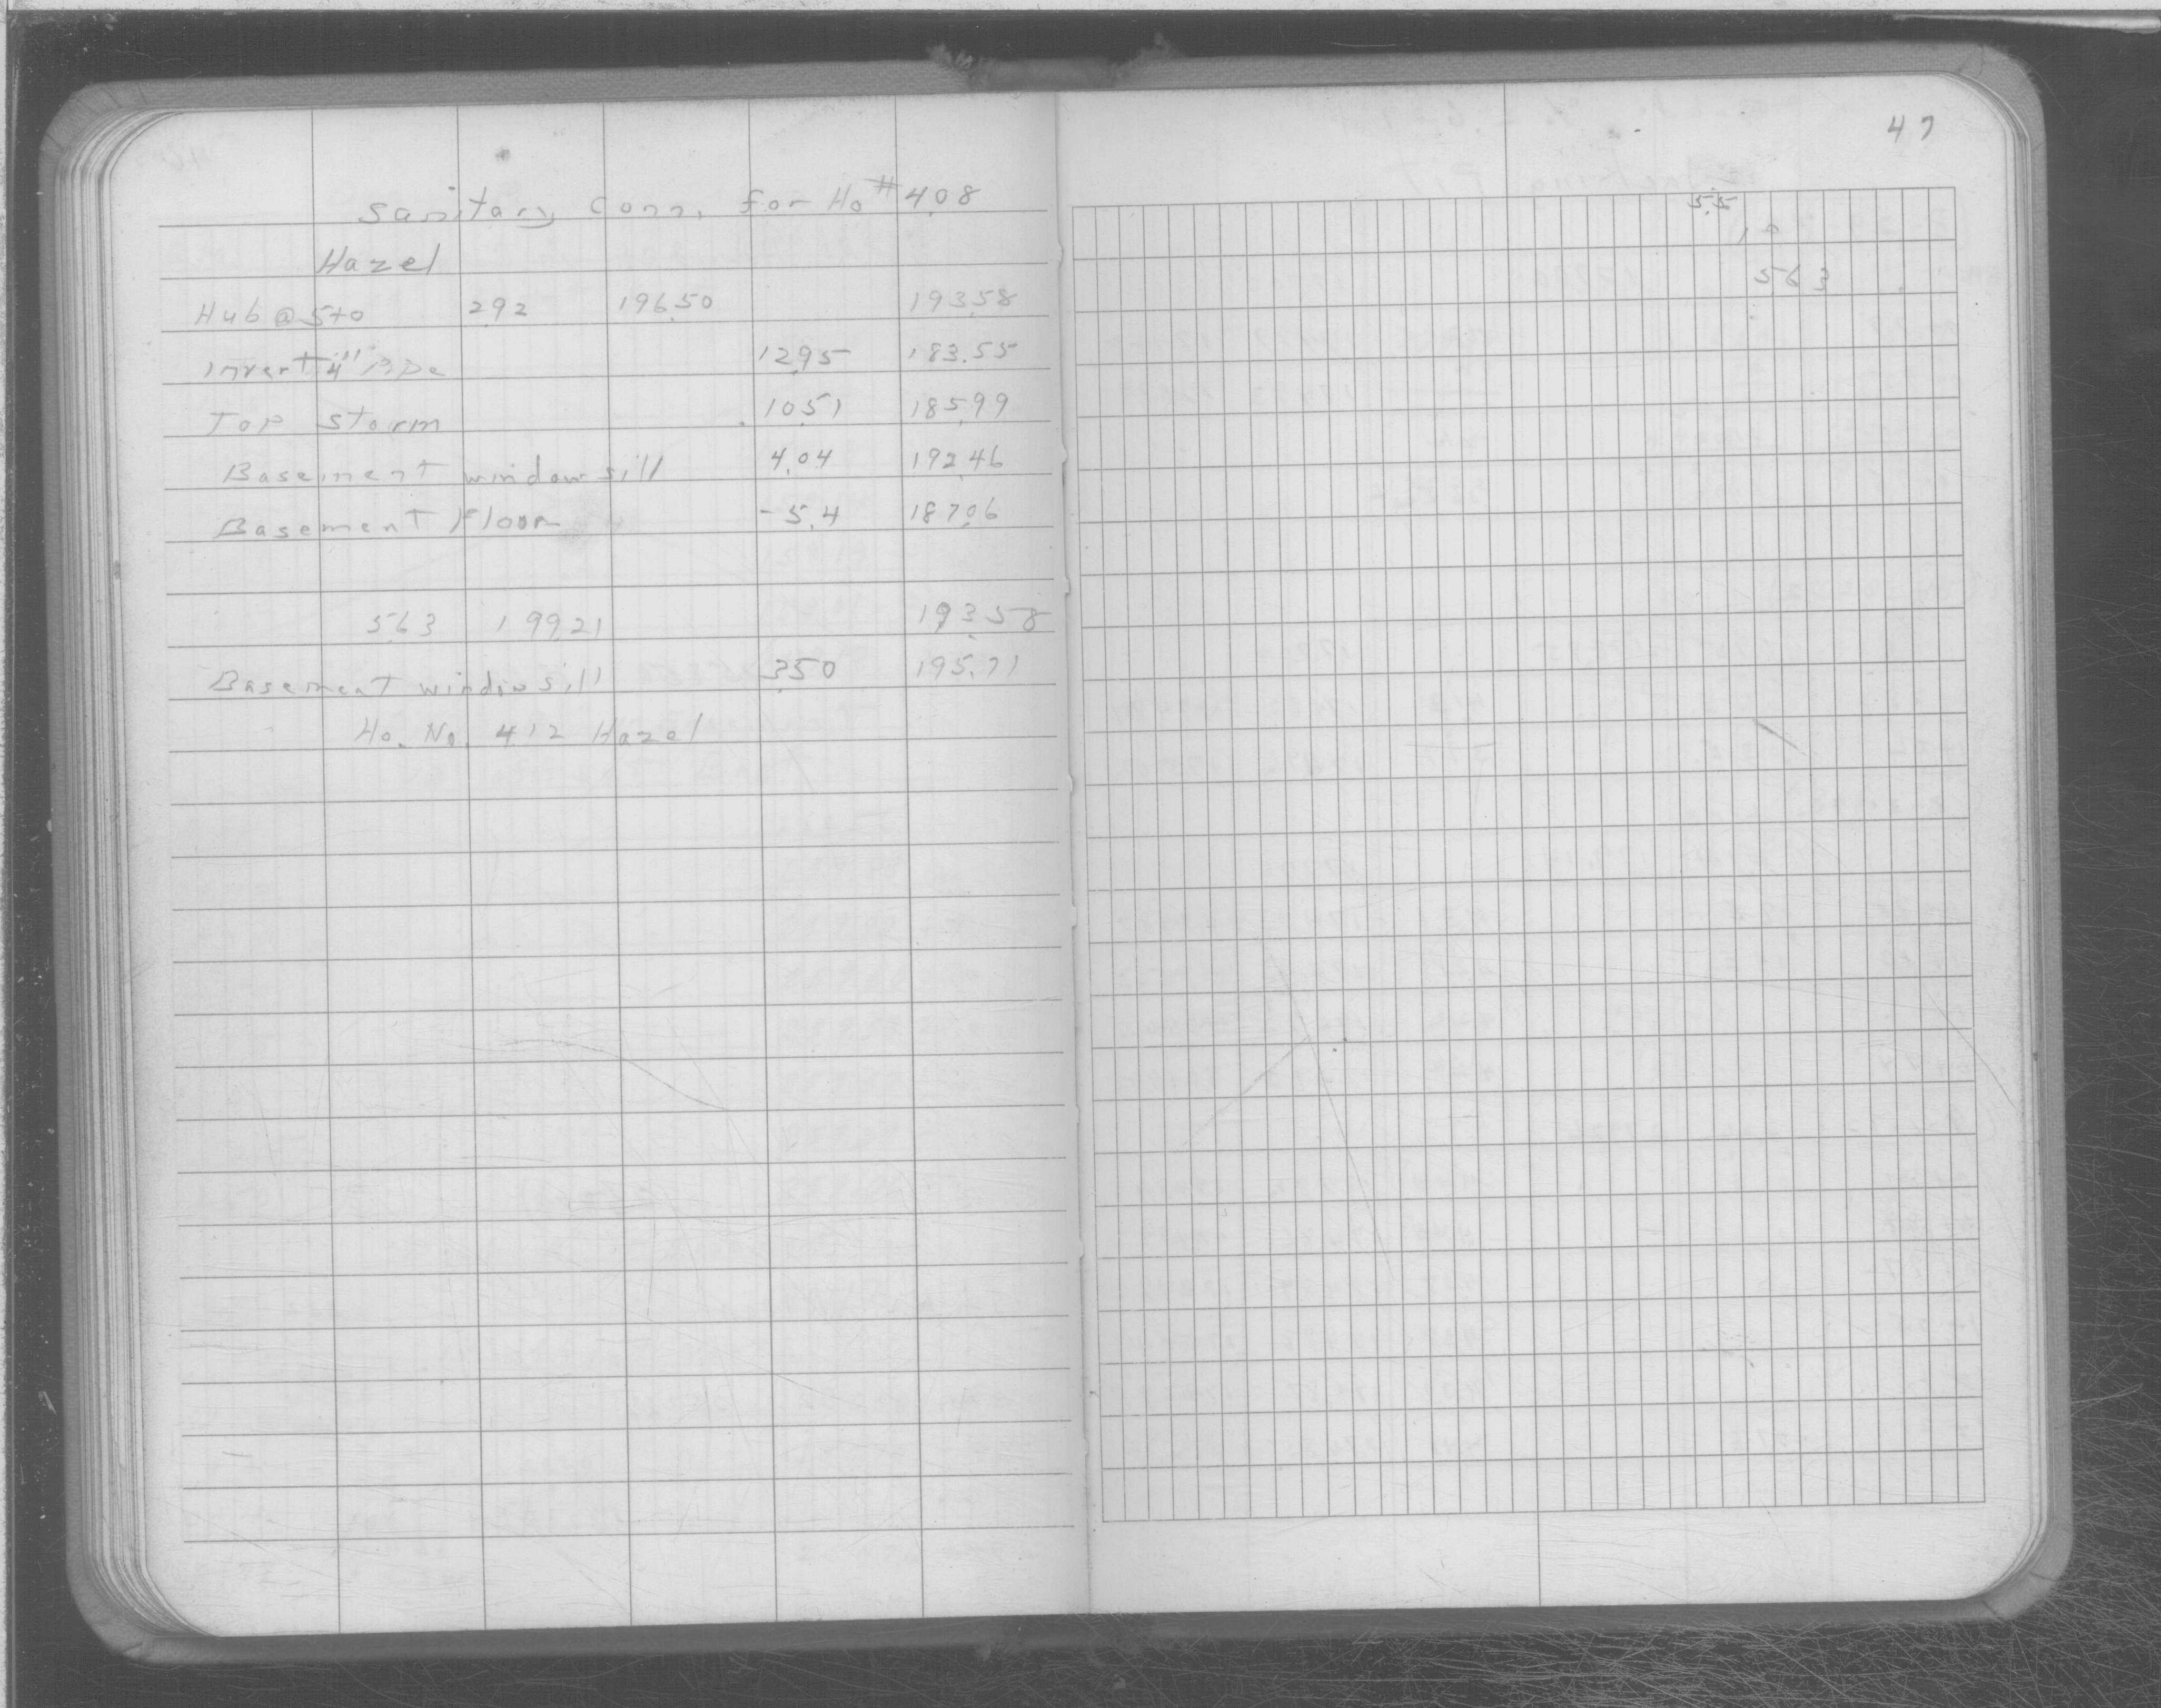 Sanitary Conn. for Ho #408
Hazel
Hub @ 5+0 2.92 196.50 193.58
Invert 4" Pipe 12.95 183.55
Top Storm 10.51 185.99
Basement window sill 4.04 192.46
Basement Floor -5.4 187.06
5.63 199.21 193.58
Basement window sill 3.50 195.71
Ho. No. 412 Hazel
47
5.5
563